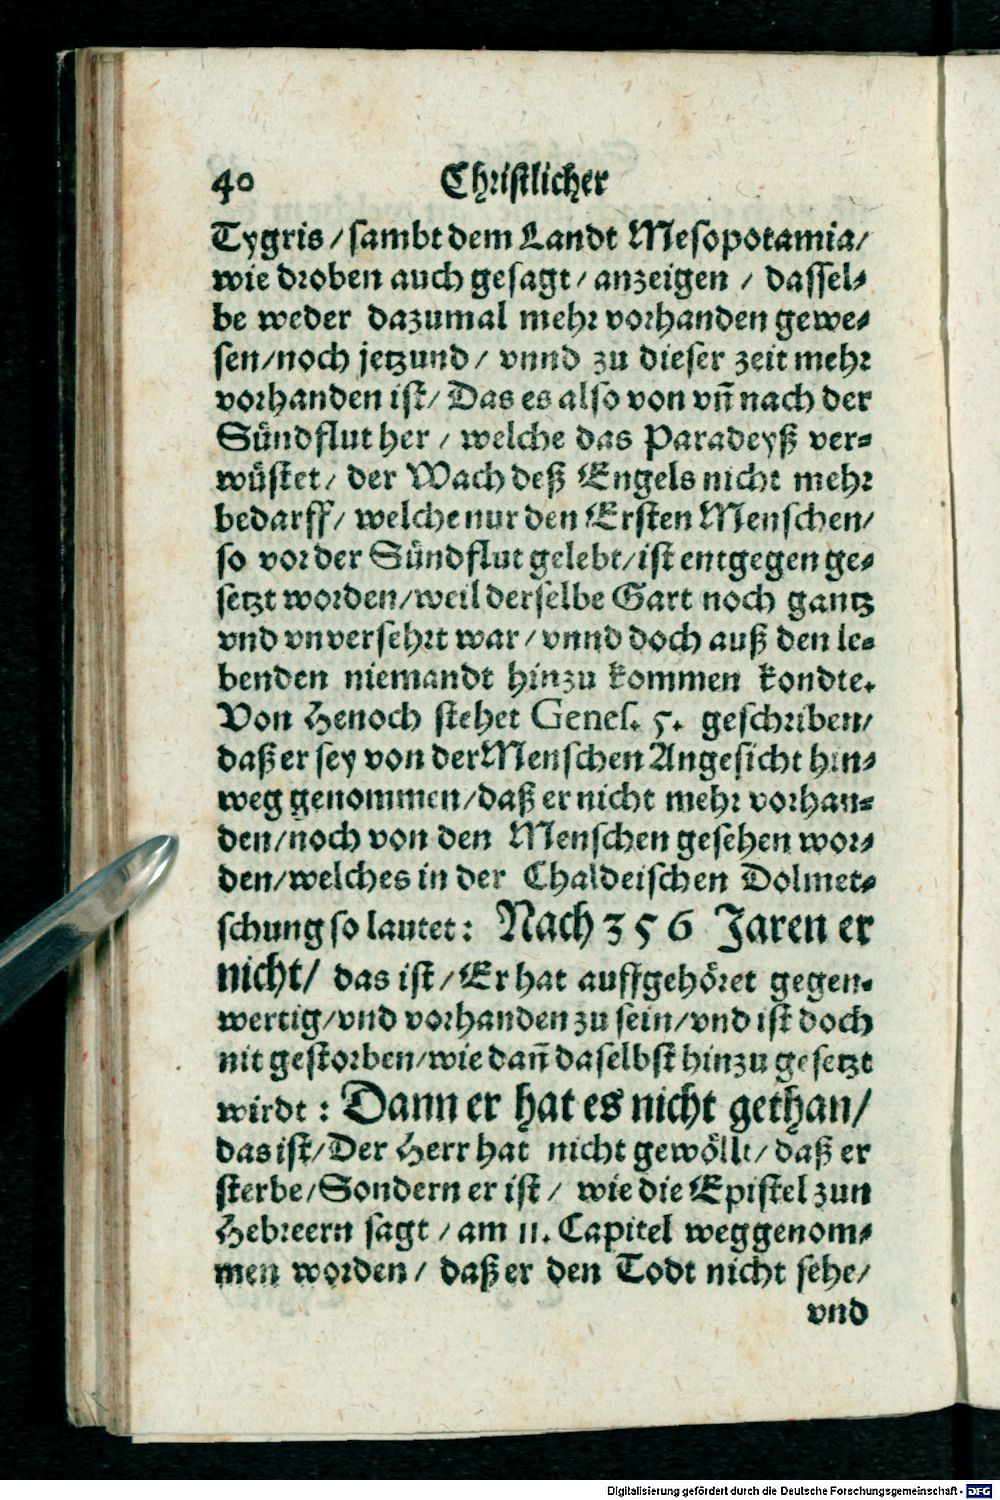 40 Christlicher
Tygris / sambt dem Landt Mesopotamia /
wie droben auch gesagt / anzeigen / dassel-
be weder dazumal mehr vorhanden gewe-
sen / noch jetzund / vnnd zu dieser zeit mehr
vorhanden ist / Das es also von vn̄ nach der
Sündflut her / welche das Paradeyß ver-
wüstet / der Wach deß Engels nicht mehr
bedarff / welche nur den Ersten Menschen /
so vor der Sündflut gelebt / ist entgegen ge-
setzt worden / weil derselbe Gart noch gantz
vnd vnversehrt war / vnnd doch auß den le-
benden niemandt hinzu kommen kondte.
Von Henoch stehet Genes. 5. geschriben /
daß er sey von der Menschen Angesicht hin-
weg genommen / daß er nicht mehr vorhan-
den / noch von den Menschen gesehen wor-
den / welches in der Chaldeischen Dolmet-
schung so lautet: Nach 356 Jaren er
nicht / das ist / Er hat auffgehöret gegen-
wertig / vnd vorhanden zu sein / vnd ist doch
nit gestorben / wie dan̄ daselbst hinzu gesetzt
wirdt : Dann er hat es nicht gethan /
das ist / Der Herr hat nicht gewöllt / daß er
sterbe / Sondern er ist / wie die Epistel zun
Hebreern sagt / am 11. Capitel weggenom-
men worden / daß er den Todt nicht sehe /
vnd
Digitalisierung gefördert durch die Deutsche Forschungsgemeinschaft - DFG